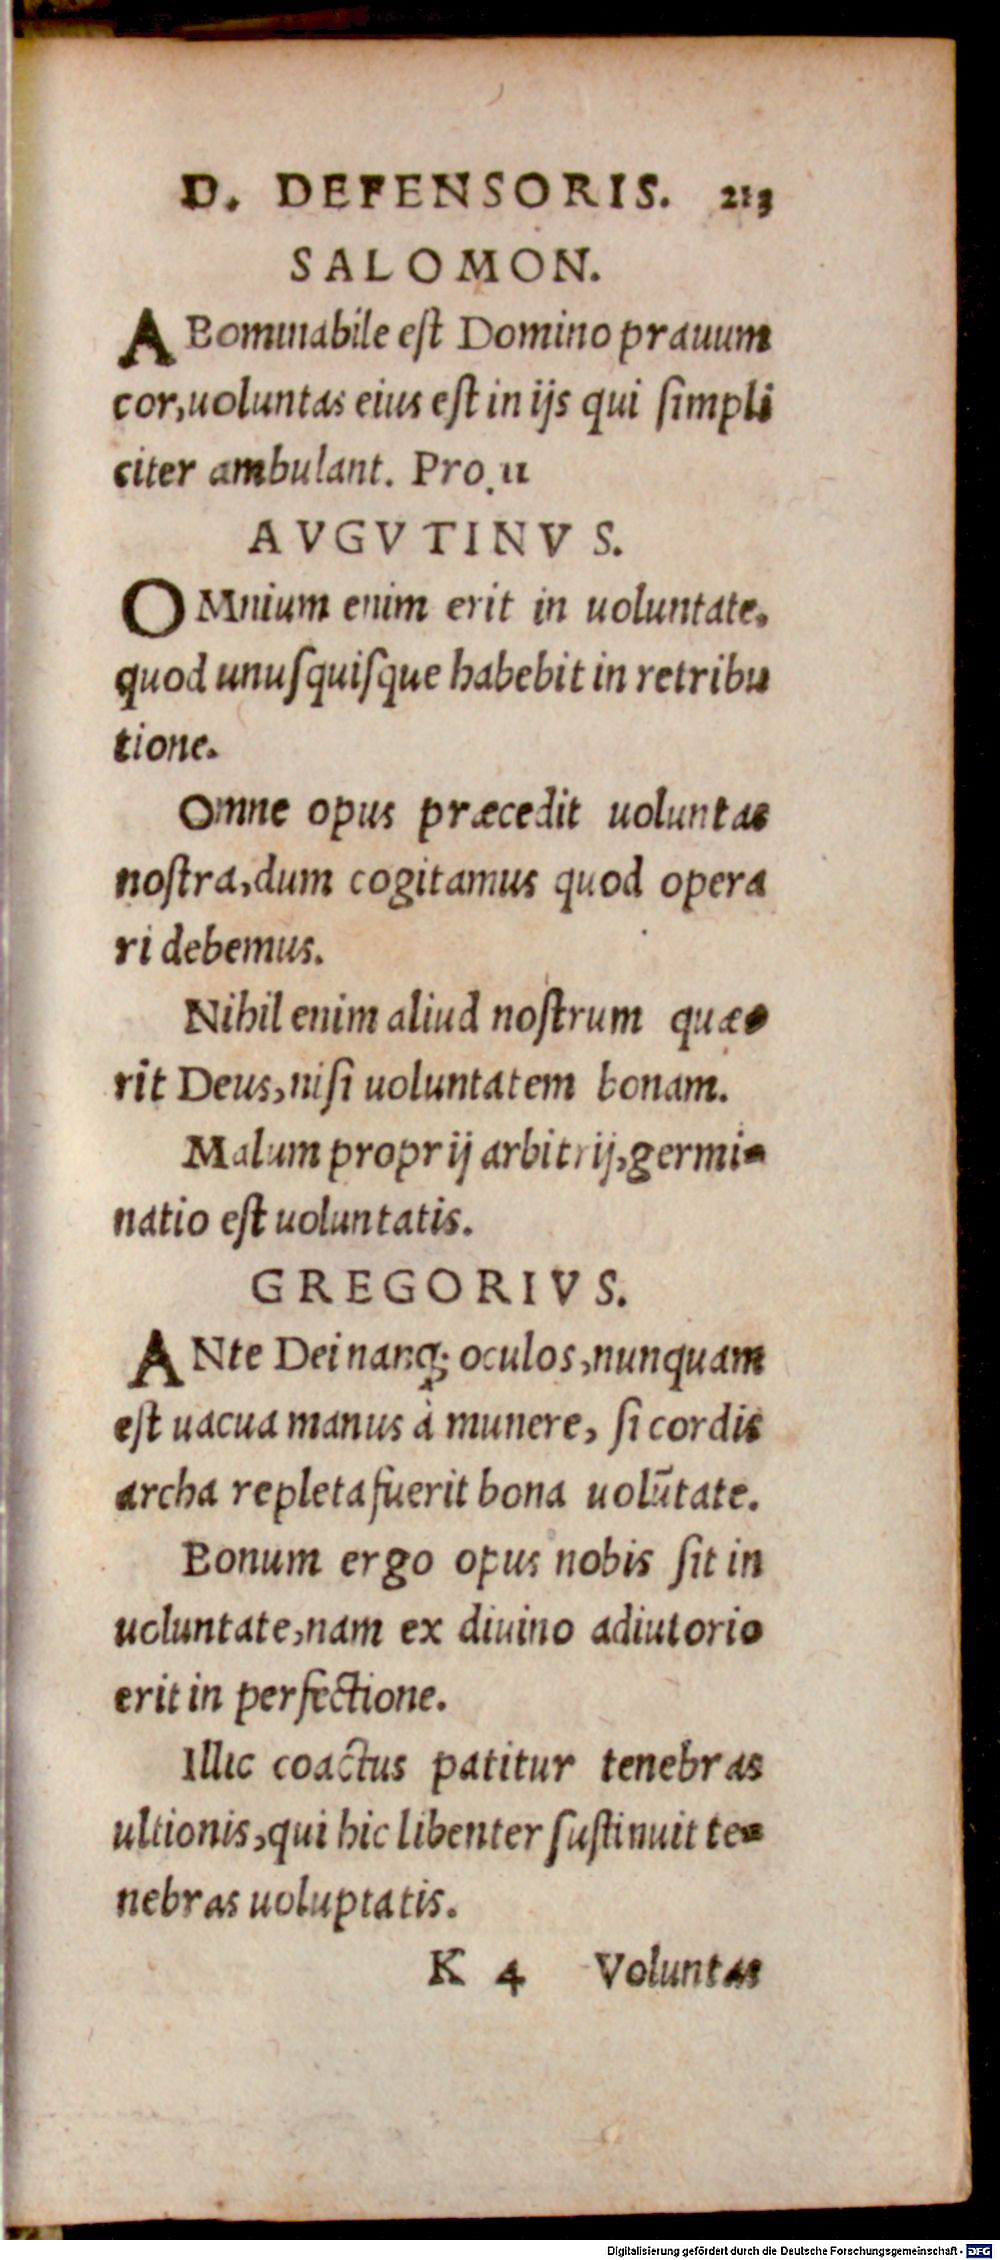 D. DEFENSORIS. 213
SALOMON.
ABominabile est Domino prauum
cor, uoluntas eius est in ijs qui simpli
citer ambulant. Pro. 11
AVGVTINVS.
OMnium enim erit in uoluntate.
quod unusquisque habebit in retribu
tione.
Omne opus præcedit uoluntas
nostra, dum cogitamus quod opera
ri debemus.
Nihil enim aliud nostrum quæ-
rit Deus, nisi uoluntatem bonam.
Malum proprij arbitrij, germi-
natio est uoluntatis.
GREGORIVS.
ANte Dei nanq; oculos, nunquam
est uacua manus à munere, si cordis
archa repleta fuerit bona uolūtate.
Bonum ergo opus nobis sit in
uoluntate, nam ex diuino adiutorio
erit in perfectione.
Illic coactus patitur tenebras
ultionis, qui hic libenter sustinuit te-
nebras uoluptatis.
K 4 Voluntas
Digitalisierung gefördert durch die Deutsche Forschungsgemeinschaft - DFG